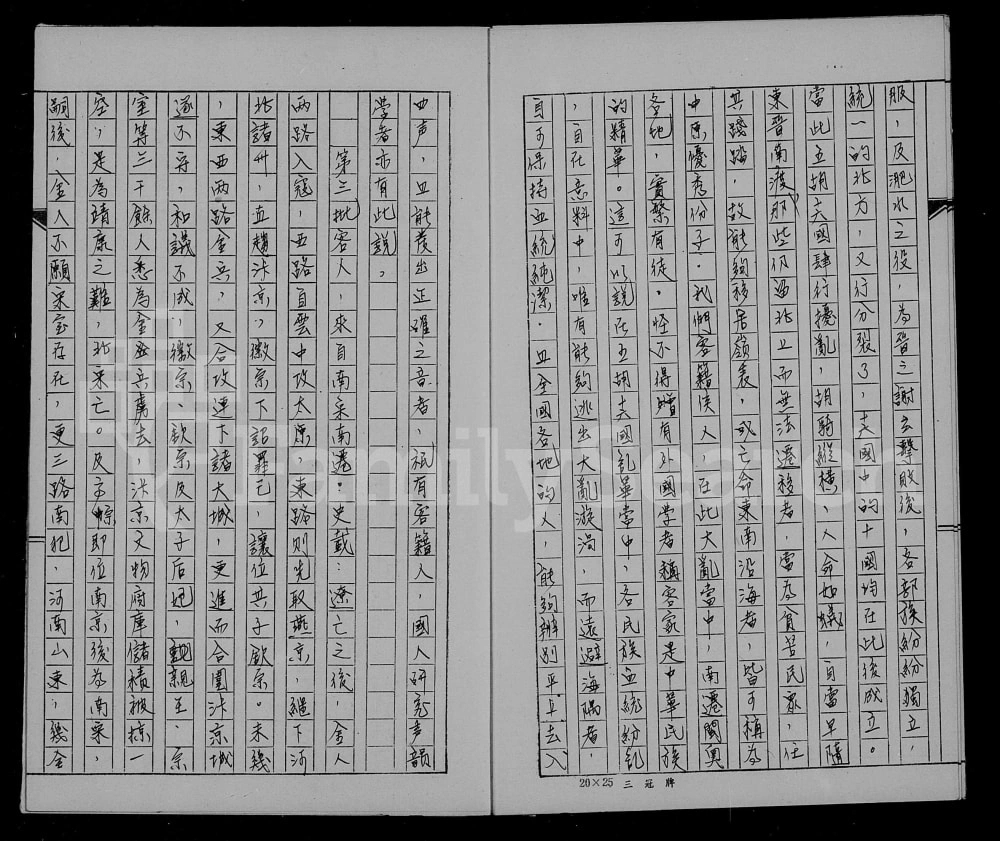 服，及淝水之役，為晉之謝玄擊敗後，各部族紛紛獨立，
統一的北方，又行分裂了，六國中的十國均在此後成立。
當此五胡六國肆行擾亂，胡騎縱橫，人命如蟻，自當早隨
東晉南渡那些仍迴北上而無法遷移者，當為貧苦民眾，任
其踐踏，故能夠移居嶺表，或亡命東南沿海者，皆可稱為
中原優秀份子．我們客籍侯人在此大亂當中，南遷閩粵
各地，實繁有徒。怪不得曾有外國學者稱客家是中華民族
的精華。這可以說在五胡六國乱華當中，各民族血統紛乱
，自在意料中，唯有能夠逃出大亂漩渦，而遠避海隅者，
自可保持血統純潔．且全國各地的人，能夠辦別平上去入
四声，且能發出正確之音者，祇有客籍人，國人研究声韻
學者亦有此說。
第三批客人，來自南宋南遷。史載：遼亡之後，金人
兩路入寇，西路自雲中攻太原，東路則先取燕京，繼下河
北諸州，直趨汴京，徽宗下詔罪己，讓位其子欽宗。未幾
，東西兩路金兵，又合攻連下諸大城，更進而合圍汴京城
遂不守，和議不成，徽宗、欽宗及太子后妃，親王、宗
室等三千餘人悉為金兵虜去，汴京文物府庫儲積被掠一
空，是為靖康之難，北宋亡。及高宗即位南京後為南宋，
嗣後，金人不願宋室存在，更三路南犯，河南山東，幾全
20×25 三冠牌
FamilySearch